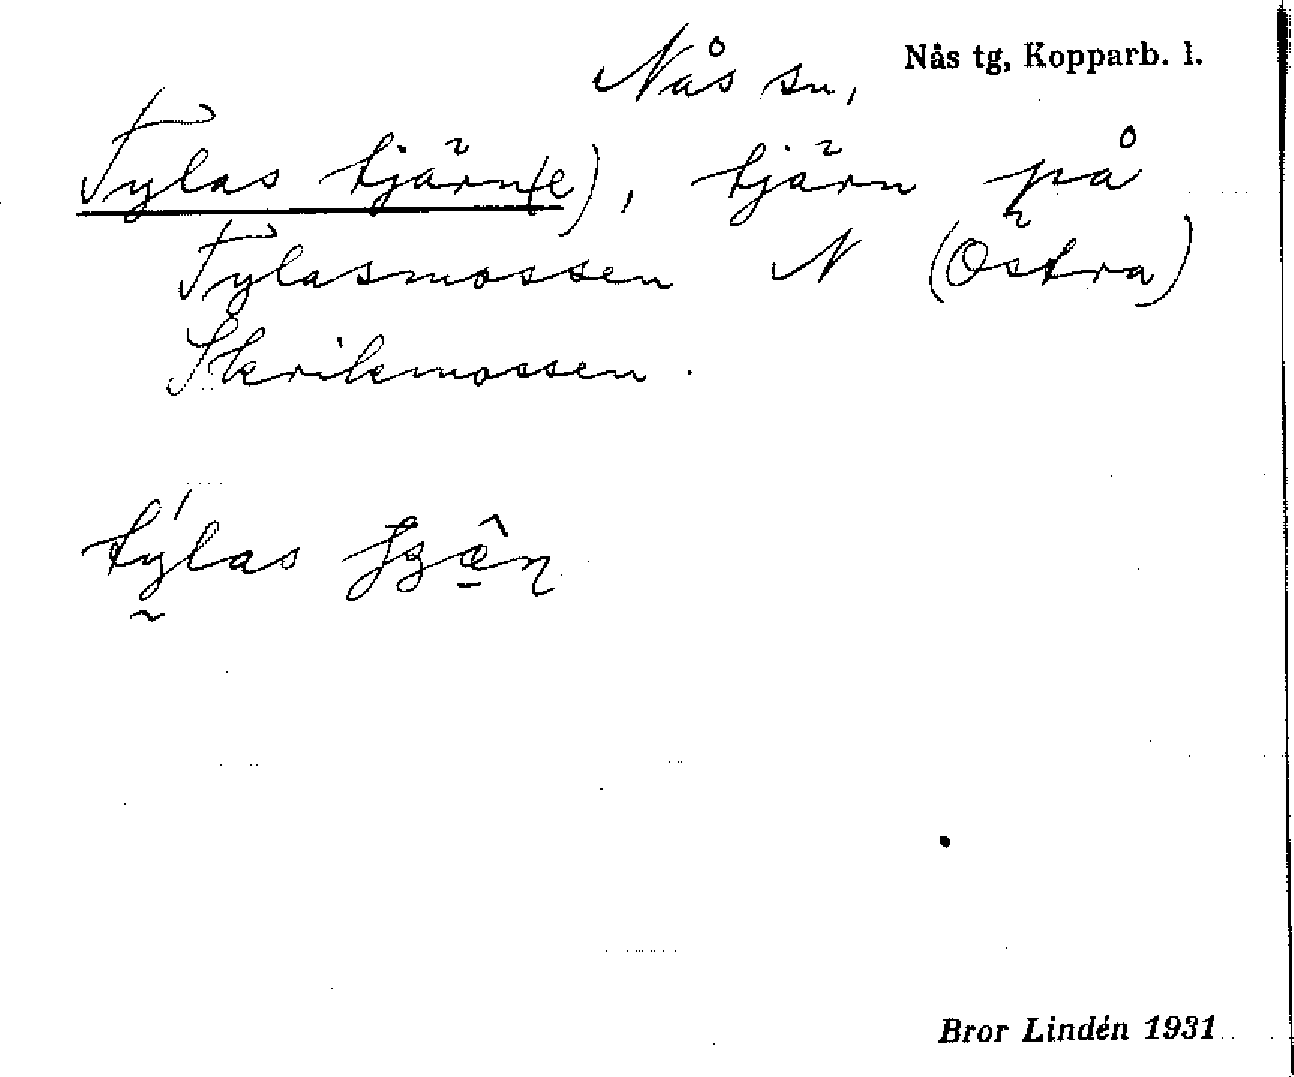 Nås sn, Nås tg, Kopparb. l.
Tylas tjärn(e), tjärn på
Tylasmossen N (Östra)
Skrikmossen.
týlas
Bror Lindén 1931